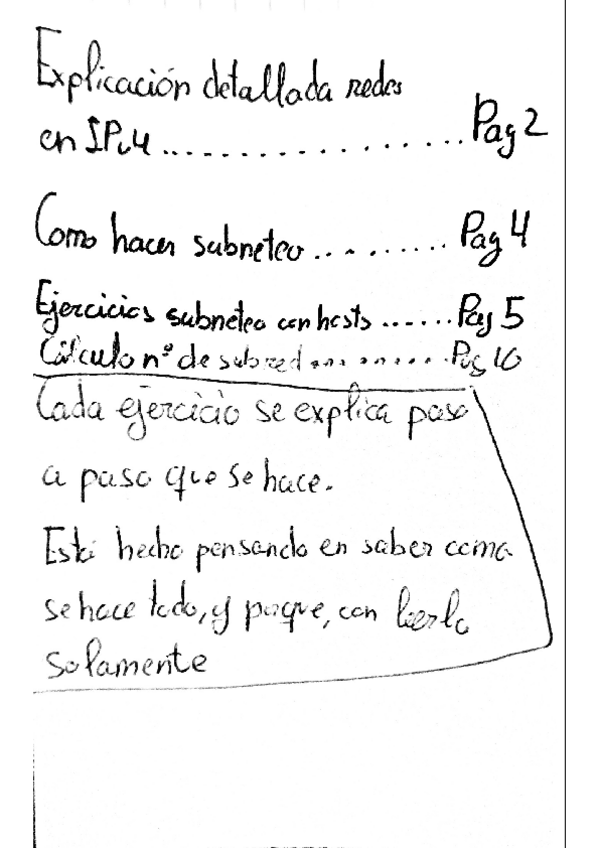 Explicación detallada redes
en IPv4 ..................... Pag 2
Como hacer subneteo .......... Pag 4
Ejercicios subneteo con hosts ...... Pag 5
Cálculo nº de subred .......... Pag 10
Cada ejercicio se explica paso
a paso que se hace.
Está hecho pensando en saber como
se hace todo, y porque, con leerlo
solamente